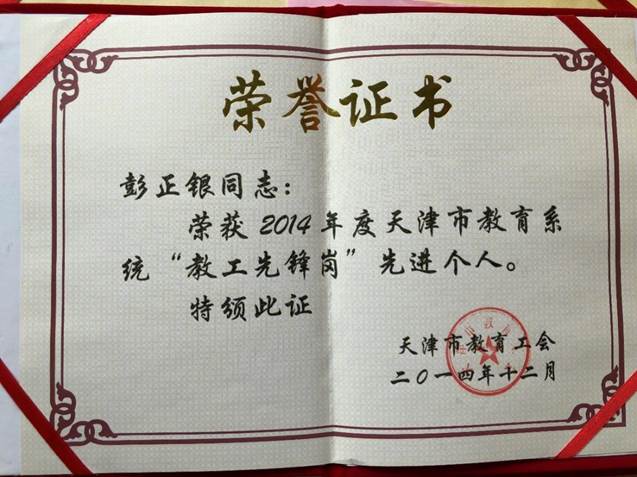 荣誉证书
彭正银同志：
荣获2014年度天津市教育系
统“教工先锋岗”先进个人。
特颁此证
天津市教育工会
二〇一四年十二月